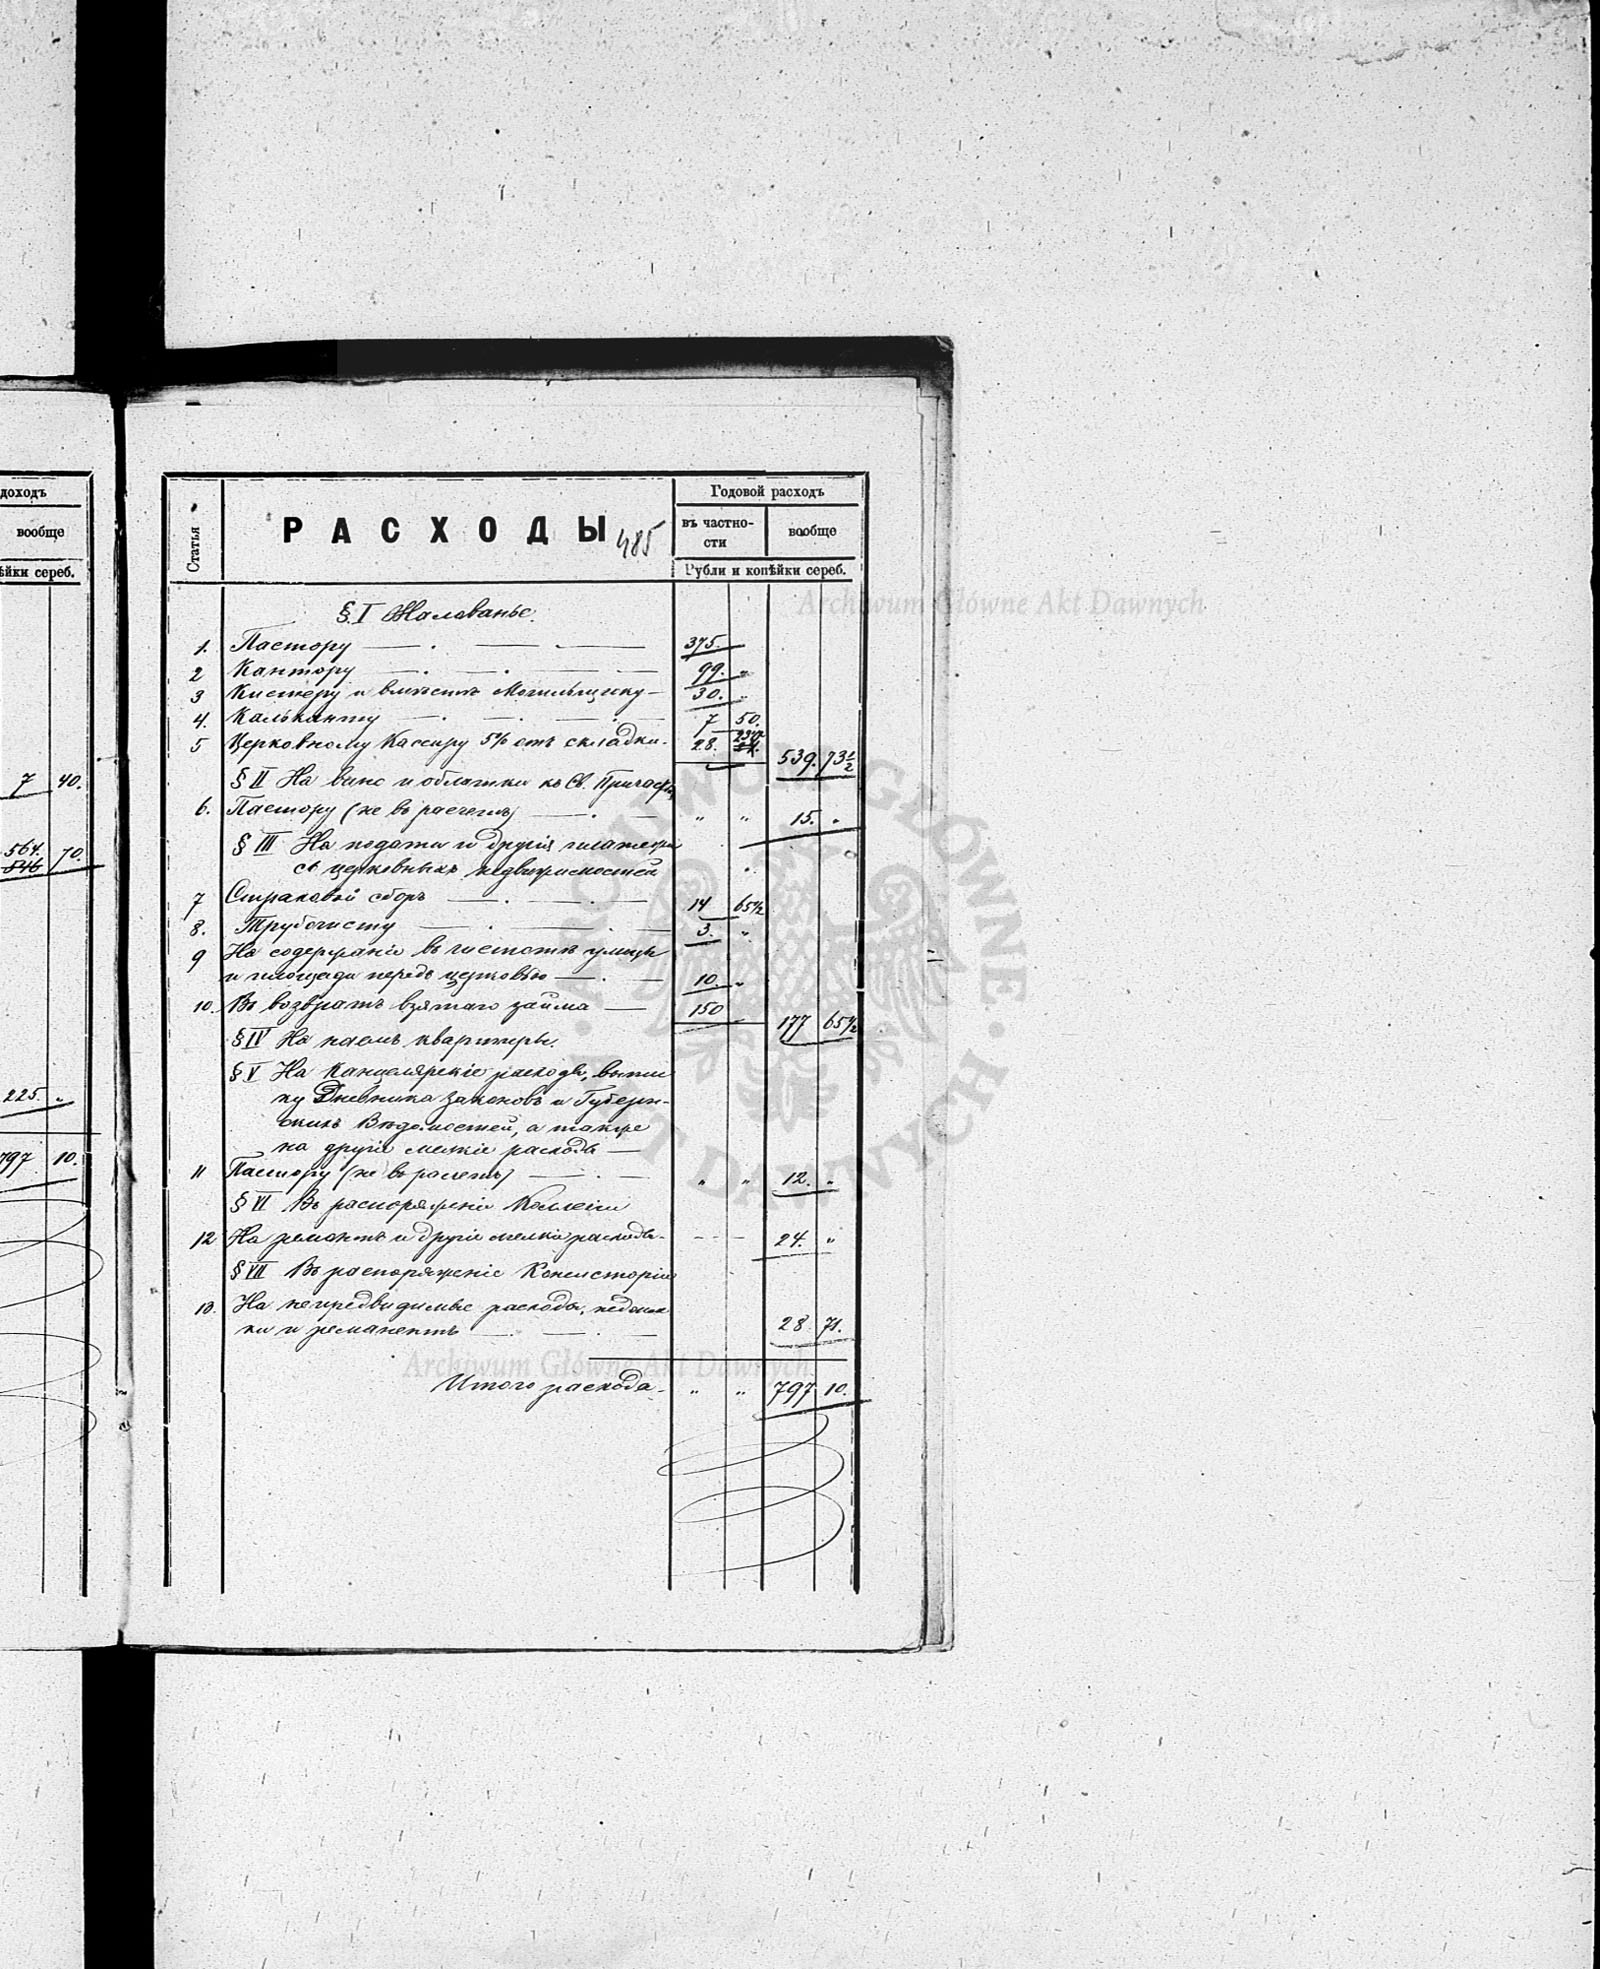 доходъ
вообще
ѣйки сереб.
7 40.
564.
546 70.
225. "
797 10.
Статья
РАСХОДЫ
485
Годовой расходъ
въ частно-
сти
вообще
Рубли и копѣйки сереб.
§ I Жалованье.
1. Пастору 375.
2 Кантору 99. "
3 Кистеру и вмѣстѣ Могильщику 30. "
4. Кальканту 7 50.
5 Церковному Кассиру 5% отъ складки. 28. 23½ 539. 73½
§ II На вино и облатки къ Св. Причастію
6. Пастору (не въ расчетъ) " " 15. "
§ III На подати и другія платежи
съ церковныхъ недвижимостей
7 Страховой сборъ 14 65½
8. Трубочисту 3. "
9 На содержаніе въ чистотѣ улицы
и площади передъ церковью 10. "
10. Въ возвратъ взятаго займа 150 177 65½
§ IV На наемъ квартиры.
§ V На Канцелярскіе расходы, выпис
ку Дневника законовъ и Губерн-
скихъ Вѣдомостей, а также
на другіе мелкіе расходы
11 Пастору (не въ расчетъ) " " 12. "
§ VI Въ распоряженіи Коллегіи
12 На ремонтъ и другіе мелкіе расходы 24. "
§ VII Въ распоряженіе Консисторіи
13. На непредвидимые расходы, недоим
ки и реманентъ 28 71.
Итого расхода. " " 797 10.
Archiwum Główne Akt Dawnych
Archiwum Główne Akt Dawnych
ARCHIWUM GŁÓWNE AKT DAWNYCH